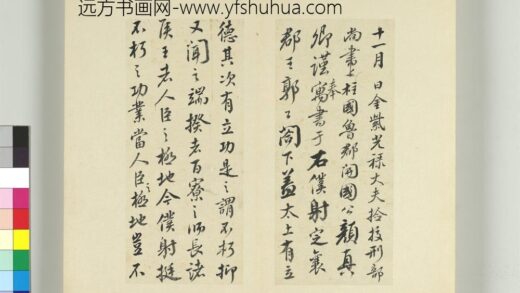 远方书画网-www.yfshuhua.com
十一月 日金紫光禄大夫检校刑部
尚書上柱國魯郡開國公顏真
卿謹奉寓書于右僕射定襄
郡王郭公閤下盖太上有立
德其次有立功是之謂不朽抑
又聞之端揆者百寮之师長諸
侯王者人臣之極地今僕射挺
不朽之功業當人臣之極地豈不